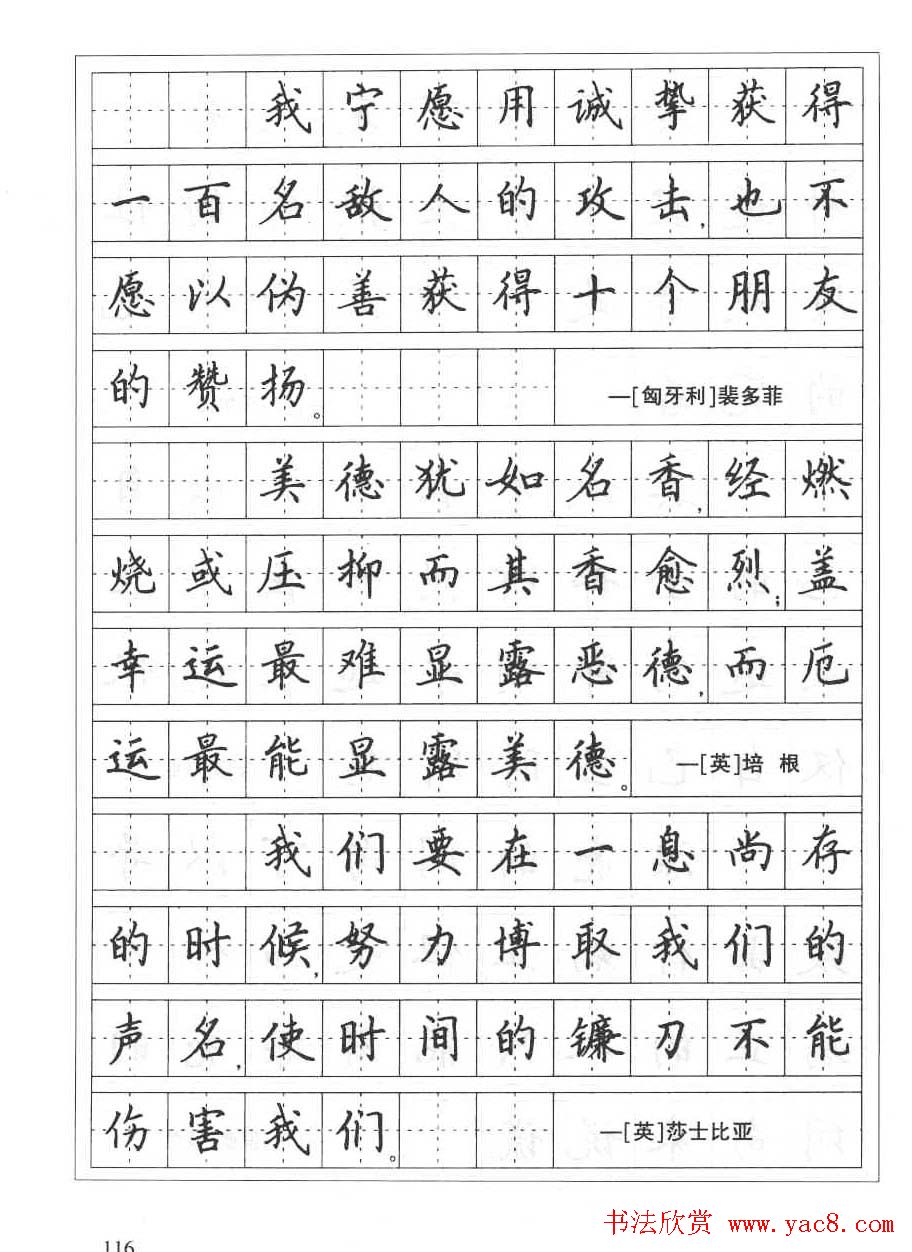 我宁愿用诚挚获得
一百名敌人的攻击,也不
愿以伪善获得十个朋友
的赞扬。 —[匈牙利]裴多菲
美德犹如名香,经燃
烧或压抑而其香愈烈;盖
幸运最难显露恶德,而厄
运最能显露美德。 —[英]培 根
我们要在一息尚存
的时候,努力博取我们的
声名,使时间的镰刀不能
伤害我们。 —[英]莎士比亚
书法欣赏 www.yac8.com
116